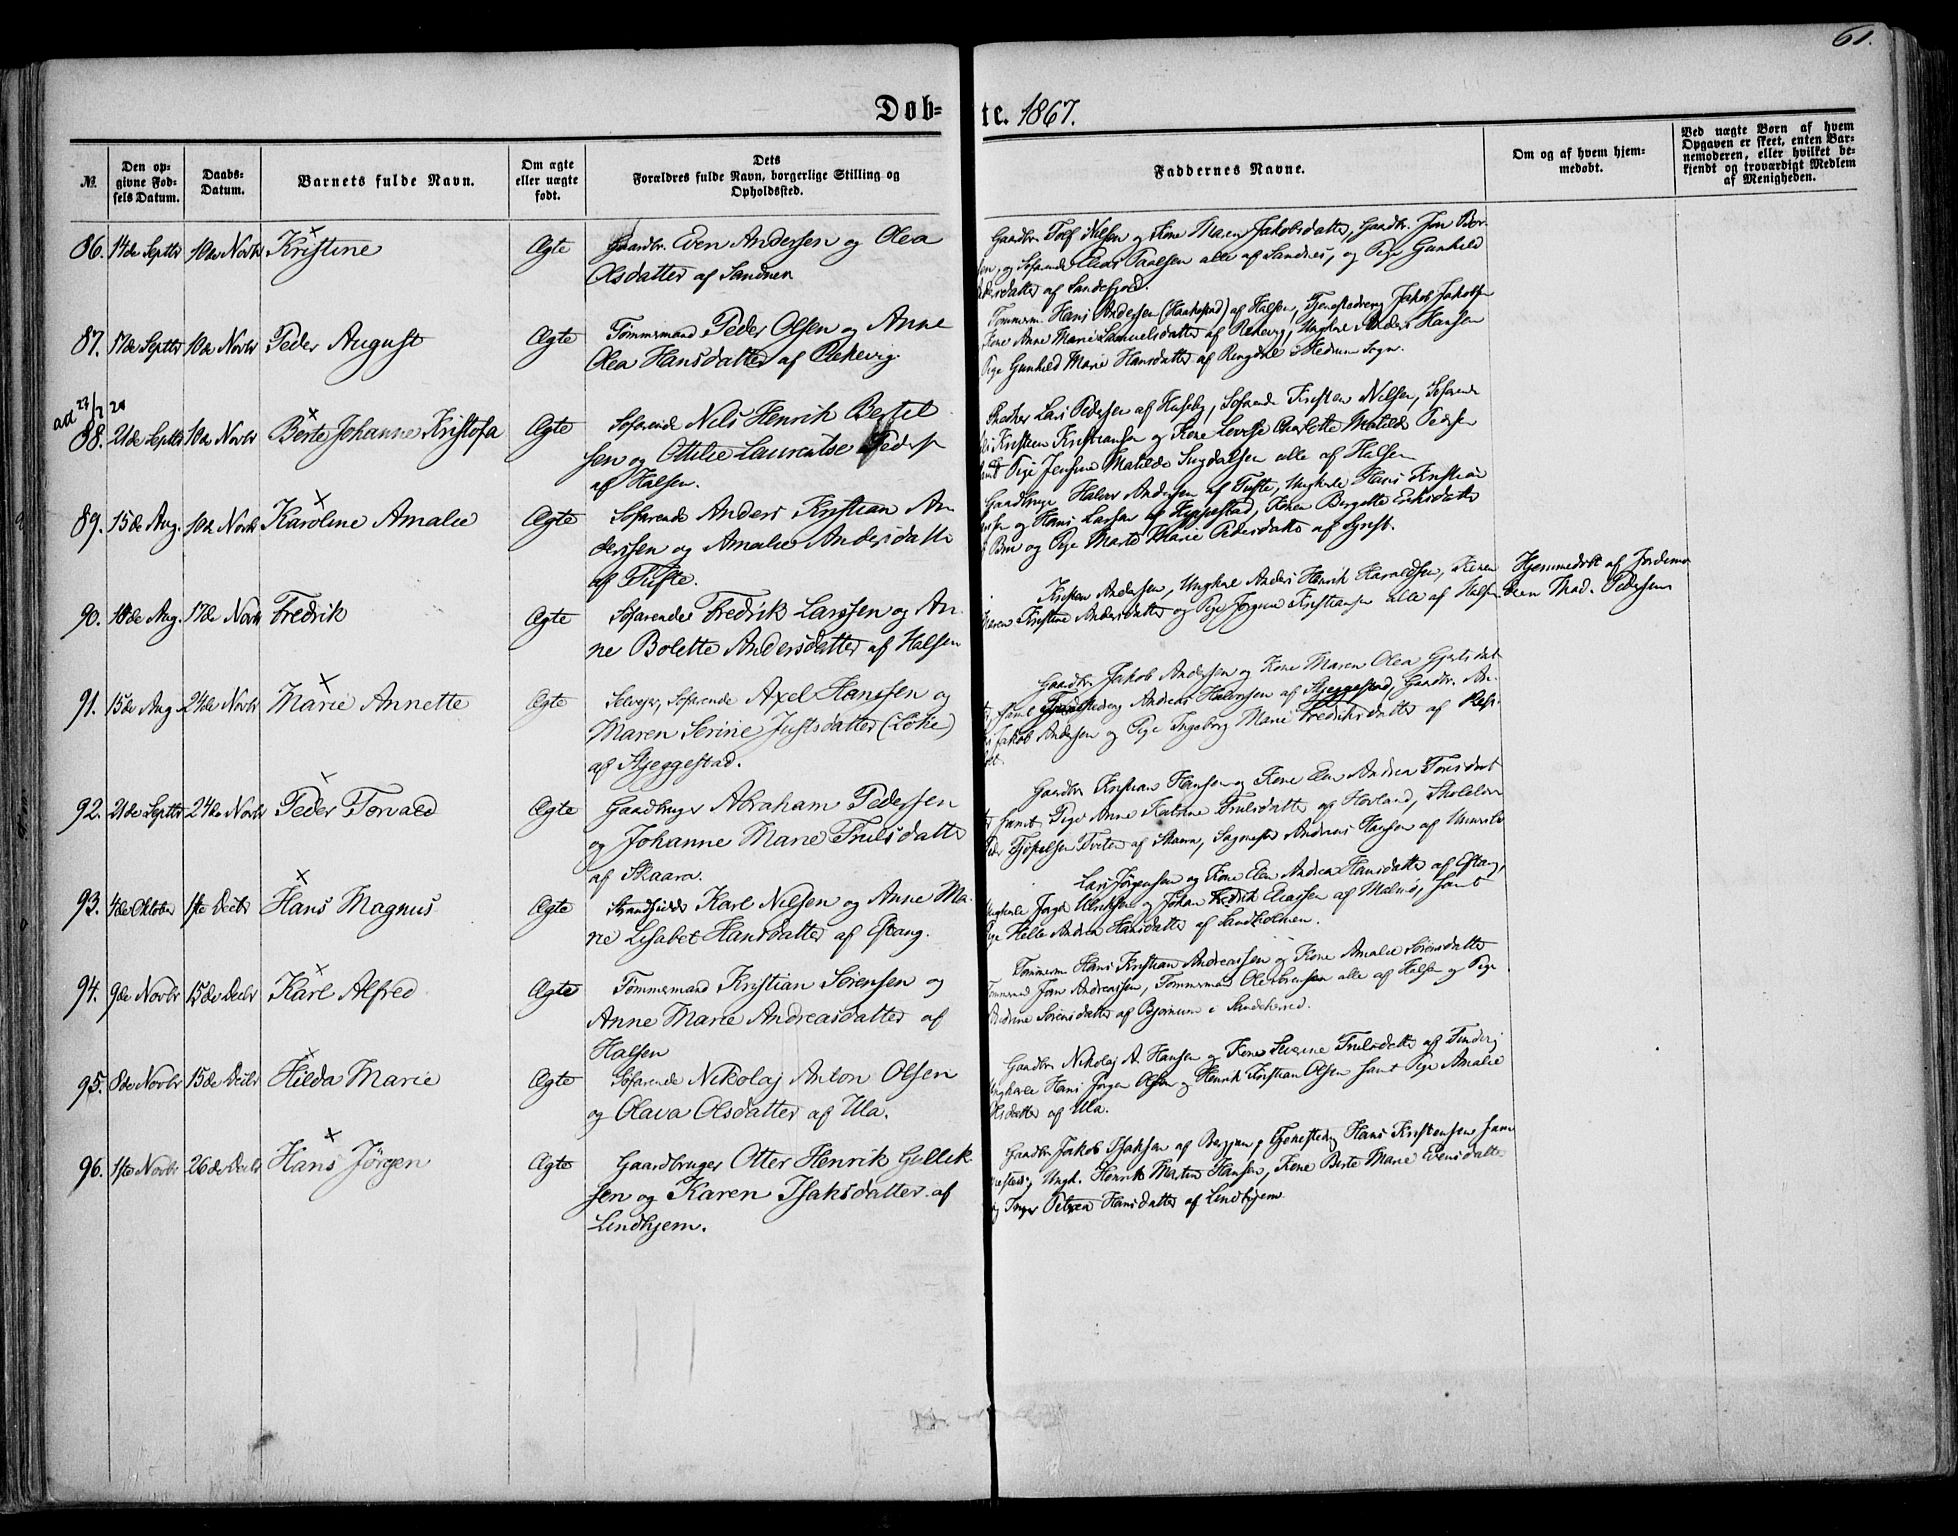 61.
Døb= te. 1867.
№ Den op- givne Fød- sels Datum. Daabs- Datum. Barnets fulde Navn. Om ægte eller uægte født. Dets Forældres fulde Navn, borgerlige Stilling og Opholdssted. Faddernes Navne. Om og af hvem hjem- medøbt. Ved uægte Børn af hvem Opgaven er skeet, enten Bar- nemoderen, eller hvilket be- kjendt og troværdigt Medlem af Menigheden.
86. 14de Septbr 10de Novbr Kristine Ægte Gaardbr. Even Andersen og Olea
Olsdatter af Sandnes
Gaardbr. Tolf Nilsen og Kone Maren Jakobsdatter, Gaardbr. Jon
og Sofarende Elias Paalsen alle af Sandnes, og Pige Gunhild
af Sandefjord.
87. 17de Septbr 10de Novbr Peder August Ægte Tømmermand Peder Olsen og Anne
Olea Hansdatter af Rekevig.
Tømmerm. Hans Andersen (Haakestad) af Halsen, Tjenestedreng Jakob Jakobsen
Kone Anne Marie Samuelsdatter af Rekevig, Ungkarl Anders Hansen
Pige Gunhild Marie Hansdatter af Ringdal i Hedrum Sogn.
88. 21de Septbr 10de Novbr Berte Johanne Kristofa Ægte Sofarende Nils Henrik Bertel
sen og Ottilie Laurentse Peders
af Halsen.
Lars Pedersen af Huseby, Sofarende Kristen Nilsen, Sofarende
Kristen Kristiansen og Kone Lovise Charlotte Matilde Pedersen
samt Pige Jensine Matilde alle af Halsen
89. 15de Aug. 10de Novbr Karoline Amalie Ægte Sofarende Anders Kristian An
derssen og Amalie Andersdatte
af Tufte.
Gaardbruger Halvor Andersen af Tufte, Ungkarl Hans Kristian
og Hans Larsen af Kjeppestad, Konen Bergette Eriksdatter
og Pige Marte Marie Pedersdatter af
90. 10de Aug. 17de Novbr Fredrik Ægte Sofarende Fredrik Larssen og An
ne Bolette Andersdatter af Halsen
Kristen Andersen, Ungkarl Anders Henrik Haraldsen, Konen
Maren Kristine Andersdatter og Pige Jørgine Kristiansen alle af Halsen
Hjemmedøbt af Jordemo
deren Mad. Pedersen
91. 15de Aug. 24de Novbr Marie Annette Ægte Selveier, Sofarende Axel Hanssen og
Maren Serine Justsdatter (Løke)
af Skjeggestad.
Gaardbr. Jakob Andersen og Kone Maren Olea Gjertsdat
samt Andreas Halvorsen af Skjeggestad, Gaardbr. An-
Jakob Andersen og Pige Ingeborg Marie Fredriksdatter af
92. 21de Septbr 24de Novbr Peder Torvald Ægte Gaardbruger Abraham Pederssen
og Johanne Marie Trulsdatter
af Skaara.
Gaardbr. Kristian Hansen og Kone Elen Andrea Toresdat
samt Pige Anne Katrine Trulsdatter af Hovland, Skolelærer
Tveten af Skaara, Andreas Hansen af
93. 4de Oktober 1ste Decbr Hans Magnus Ægte Strandsidder Karl Nilsen og Anne Ma-
rie Lisabet Hansdatter af Eftang.
Lars Jørgensen og Kone Elen Andrea Hansdatter af Eftang,
Ungkarle Jørgen Ulriksen og Johan Fredrik Eliassen af Malmø, samt
Pige Helle Andrea Hansdatter af Sandholmen.
94. 9de Novbr 15de Decbr Karl Alfred Ægte Tømmermand Kristian Sørensen og
Anne Marie Andreasdatter af
Halsen
Tømmerm. Hans Kristian Andreassen og Kone Amalie Sørensdatter
Jørn Andreassen, Tømmermand Ole Sørensen alle af Halsen og Pige
Andrine Sørensdatter af Bjørnum i Sandeherred.
95. 8de Novbr 15de Decbr Hilda Marie Ægte Sofarende Nikolaj Anton Olsen
og Olava Olsdatter af Ula.
Gaardbr. Nikolaj A. Hansen og Kone Severine Trulsdatter af
Ungkarle Hans Jørgen Olsen og Henrik Kristian Olsen samt Pige Amalie
Olsdatter af Ula.
96. 1ste Novbr 26de Decbr Hans Jörgen Ægte Gaardbruger Otter Henrik Gullik
sen og Karen Isaksdatter af
Lindhjem.
Gaardbr. Jakob Isaksen af Bergan, Tjenestedreng Hans Kristensen
Ungk. Henrik Martin Hansen, Kone Berte Marie Evensdatter
og Inger Petrea Hansdatter af Lindhjem